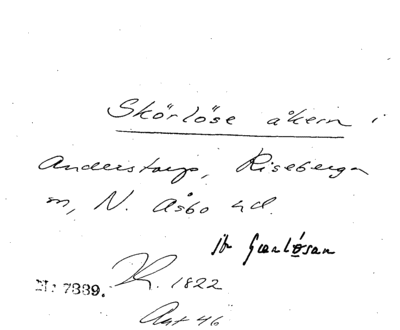 Skörlöse åkern i
Anderstorp, Riseberga
sn, N. Åsbo hd.
jfr
N: 7889. R. 1822
Akt 46